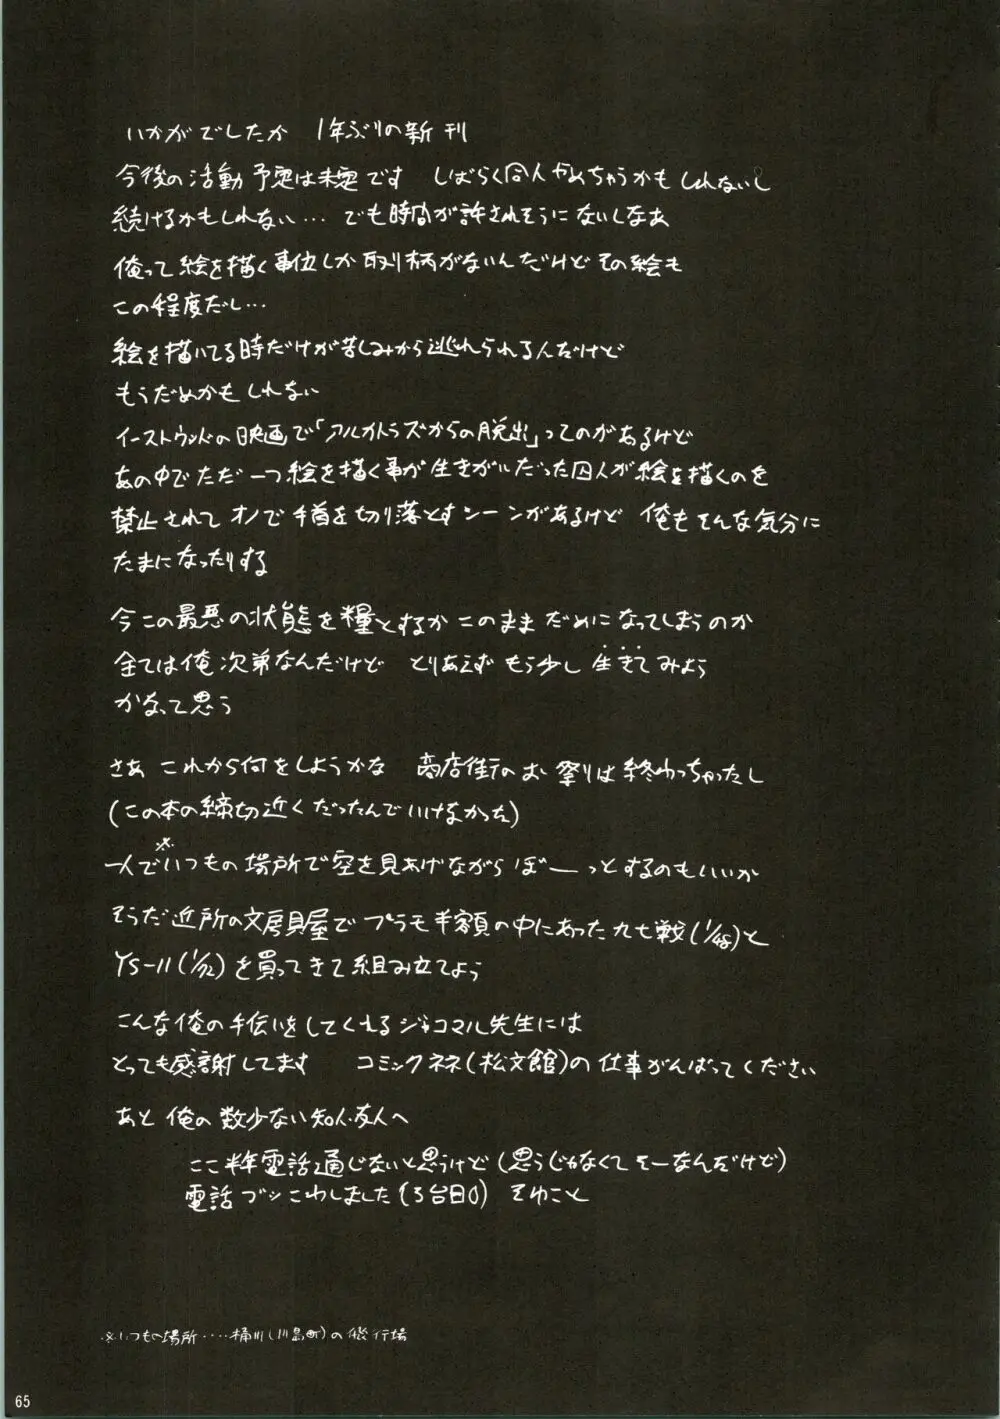 いかがでしたか　1年ぶりの新刊
今後の活動予定は未定です　しばらく同人やめちゃうかもしれないし
続けるかもしれない… でも時間が許されそうにないしなあ
俺って絵を描く事位しか取り柄がないんだけど その絵も
この程度だし…
絵を描いてる時だけが苦しみから逃れられる人だけど
もうだめかもしれない
イーストウッドの映画で「アルカトラズからの脱出」ってのがあるけど
あの中でただ一つ絵を描く事が生きがいだった囚人が絵を描くのを
禁止されて オノで手首を切り落とすシーンがあるけど 俺もそんな気分に
たまになったりする
今この最悪の状態を糧とするか このままだめになってしまうのか
全ては俺次第なんだけど　とりあえず もう少し 生きてみよう
かなって思う
さあ これから何をしようかな　商店街のお祭りは終わっちゃったし
(この本の締切近くだったんでいけなかった)
一人で※いつもの場所で空を見あげながら ぼーっとするのもいいか
そうだ近所の文房具屋で プラモ半額の中にあった九七戦(1/48)と
YS-11(1/72)を買ってきて組み立てよう
こんな俺の手伝いをしてくれるジャコマル先生には
とっても感謝してます　コミックネネ(松文館)の仕事がんばってください
あと 俺の数少ない知人・友人へ
ここ半年電話通じないと思うけど(思うじゃなくてそーなんだけど)
電話ブッこわしました(3台目) そゆこと
※いつもの場所‥‥桶川(川島町)の飛行場
65